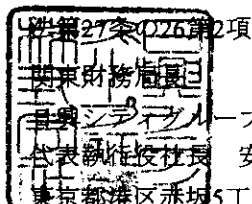 法第27条の26第2項
関東財務局長
日興シティグループ
代表執行役社長 安
東京都港区赤坂5丁